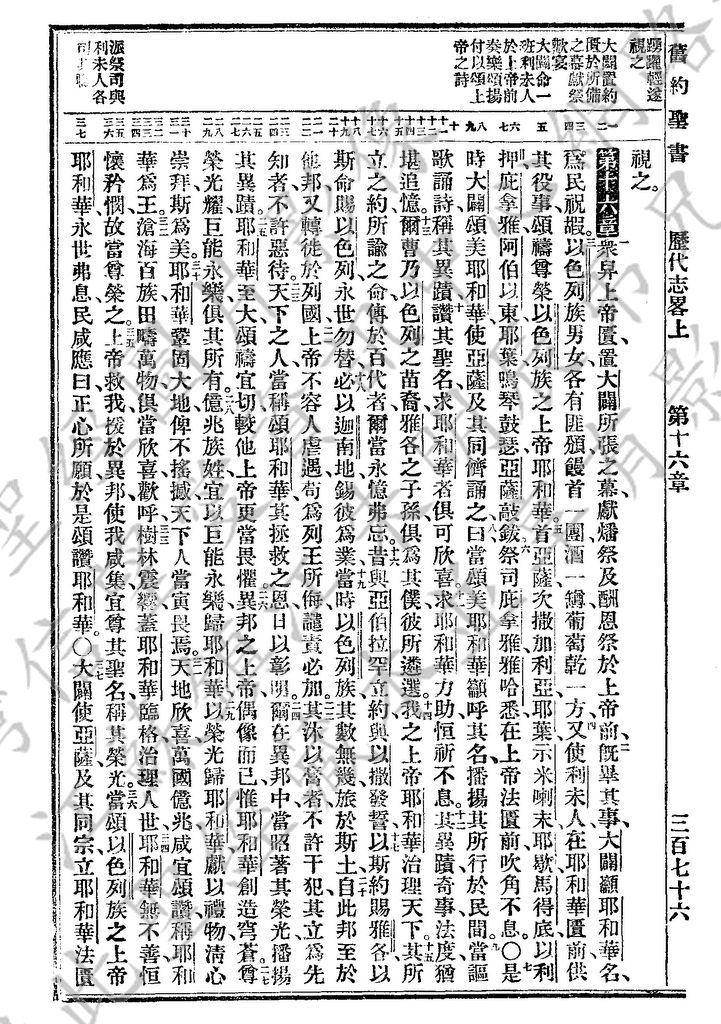 舊約聖書 歷代志畧上 第十六章 三百七十六
踴躍輕遂視之
大闢置約匱於所備之幕獻祭歡宴
大闢命一班利未人於上帝前奏樂頌揚付以頌上帝之詩
派祭司與利未人各司其職
視之。
第十六章 衆舁上帝匱置大闢所張之幕獻燔祭及酬恩祭於上帝前旣畢其事大闢籲耶和華名
爲民祝嘏以色列族男女各有匪頒饅首一團酒一罇葡萄乾一方又使利未人在耶和華匱前供
其役事頌禱尊榮以色列族之上帝耶和華首亞薩次撒加利亞耶葉示米喇末耶歇馬得底以利
押庇拿雅阿伯以東耶葉鳴琴鼓瑟亞薩敲鈸祭司庇拿雅雅哈悉在上帝法匱前吹角不息〇是
時大闢頌美耶和華使亞薩及其同儕誦之曰當頌美耶和華籲呼其名播揚其所行於民間當謳
歌誦詩稱其異蹟讚其聖名求耶和華者俱可欣喜求耶和華力助恒祈不息其異蹟奇事法度猶
堪追憶爾曹乃以色列之苗裔雅各之子孫俱爲其僕彼所遴選我之上帝耶和華治理天下其所
立之約所諭之命傳於百代者爾當永憶弗忘昔與亞伯拉罕立約與以撒發誓以斯約賜雅各以
斯命賜以色列永世勿替必以迦南地錫彼爲業當時以色列族其數無幾旅於斯土自此邦至於
他邦又轉徙於列國上帝不容人虐遇苟爲列王所侮譴責必加其沐以膏者不許干犯其立爲先
知者不許惡待天下之人當稱頌耶和華其拯救之恩日以彰明爾在異邦中當昭著其榮光播揚
其異蹟耶和華至大頌禱宜切較他上帝更當畏懼異邦之上帝偶像而已惟耶和華創造穹蒼尊
榮光耀巨能永樂俱其所有億兆族姓宜以巨能永樂歸耶和華以榮光歸耶和華獻以禮物淸心
崇拜斯爲美耶和華鞏固大地俾不搖撼天下人當寅畏焉天地欣喜萬國億兆咸宜頌讚稱耶和
華爲王滄海百族田疇萬物俱當欣喜歡呼樹林震響蓋耶和華臨格治理人世耶和華無不善恒
懷矜憫故當尊榮之上帝救我援於異邦使我咸集宜尊其聖名稱其榮光當頌以色列族之上帝
耶和華永世弗息民咸應曰正心所願於是頌讚耶和華。〇大闢使亞薩及其同宗立耶和華法匱